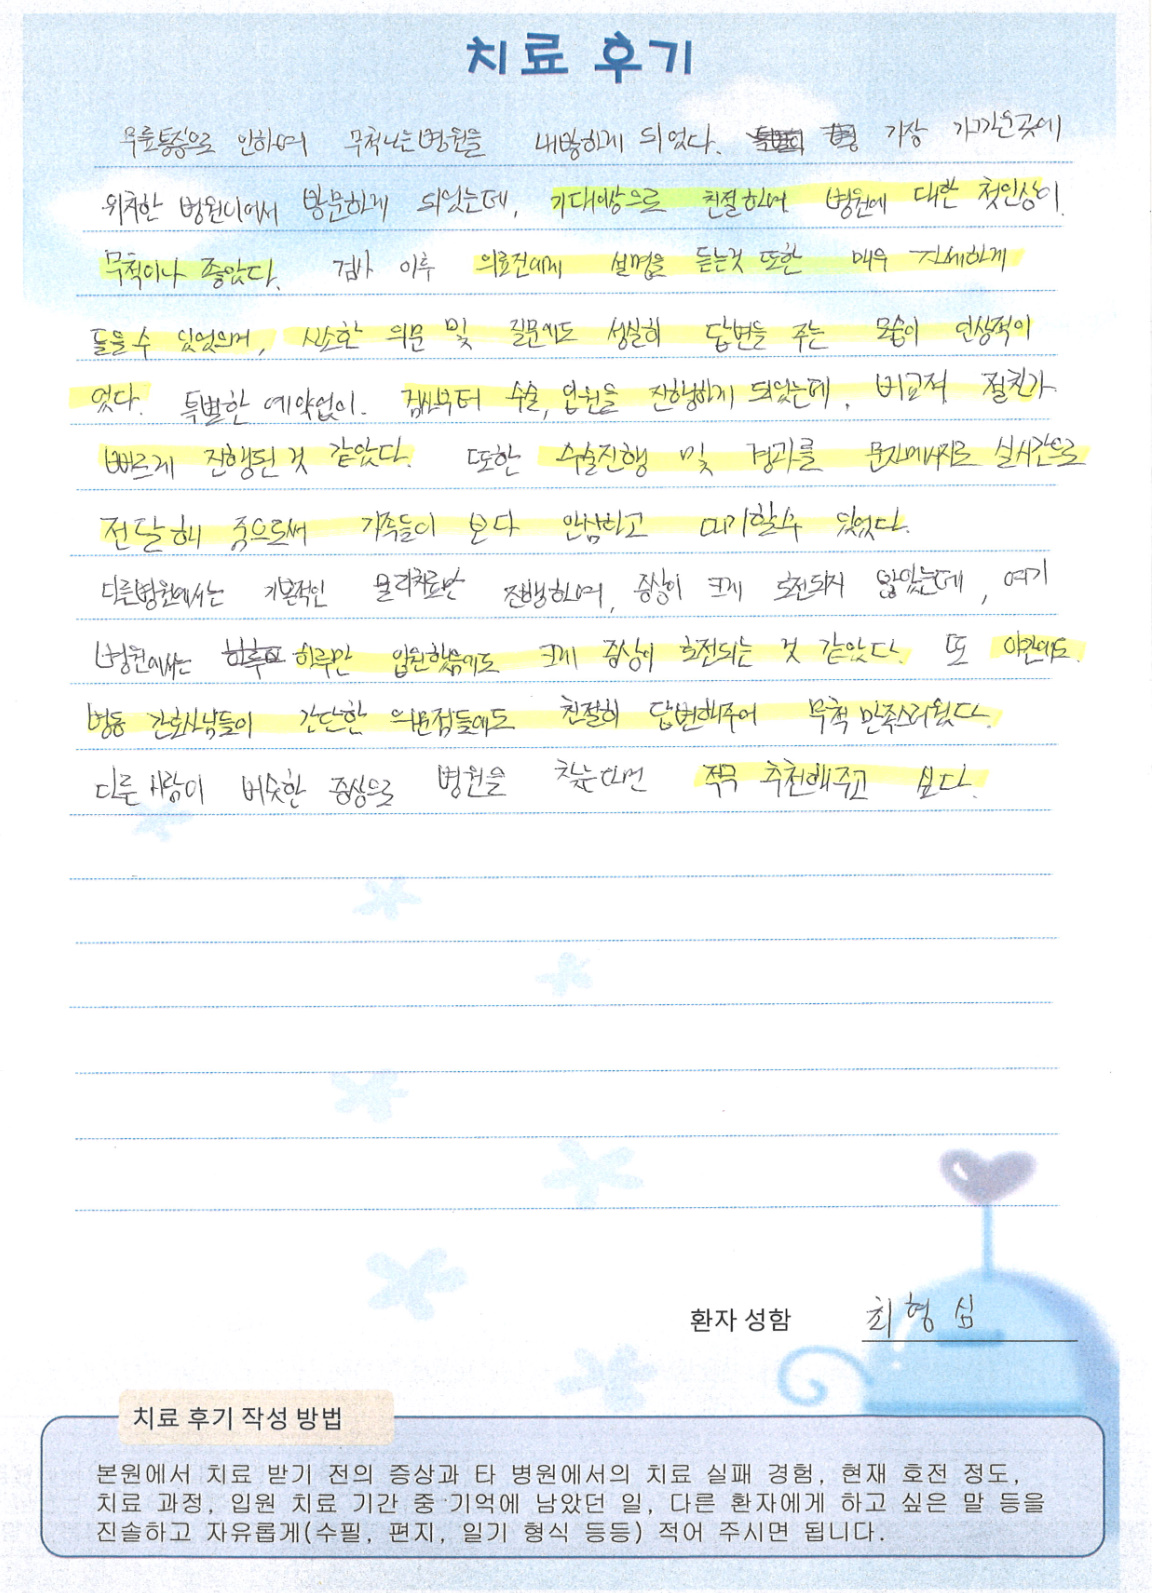 치료 후기
무릎통증으로 인하여 무척나은병원을 내방하게 되었다. 가장 가까운곳에
위치한 병원이여서 방문하게 되었는데, 기대이상으로 친절하여 병원에 대한 첫인상이
무척이나 좋았다. 검사 이후 의료진에게 설명을 듣는것 또한 매우 자세하게
들을수 있었으며, 사소한 의문 및 질문에도 성실히 답변을 주는 모습이 인상적이
었다. 특별한 예약없이. 검사부터 수술, 입원을 진행하게 되었는데, 비교적 절차가
빠르게 진행된 것 같았다. 또한 수술진행 및 경과를 문자메세지로 실시간으로
전달해 줌으로써 가족들이 보다 안심하고 대기할수 있었다.
다른병원에서는 기본적인 물리치료만 진행하여, 증상이 크게 호전되지 않았는데, 여기
병원에서는 하루만 입원했음에도 크게 증상이 호전되는 것 같았다. 또 야간에도
병동 간호사님들이 간단한 의문점들에도 친절히 답변해주어 무척 만족스러웠다.
다른 사람이 비슷한 증상으로 병원을 찾는다면 적극 추천해주고 싶다.
환자 성함 최형심
치료 후기 작성 방법
본원에서 치료 받기 전의 증상과 타 병원에서의 치료 실패 경험, 현재 호전 정도,
치료 과정, 입원 치료 기간 중 기억에 남았던 일, 다른 환자에게 하고 싶은 말 등을
진솔하고 자유롭게(수필, 편지, 일기 형식 등등) 적어 주시면 됩니다.